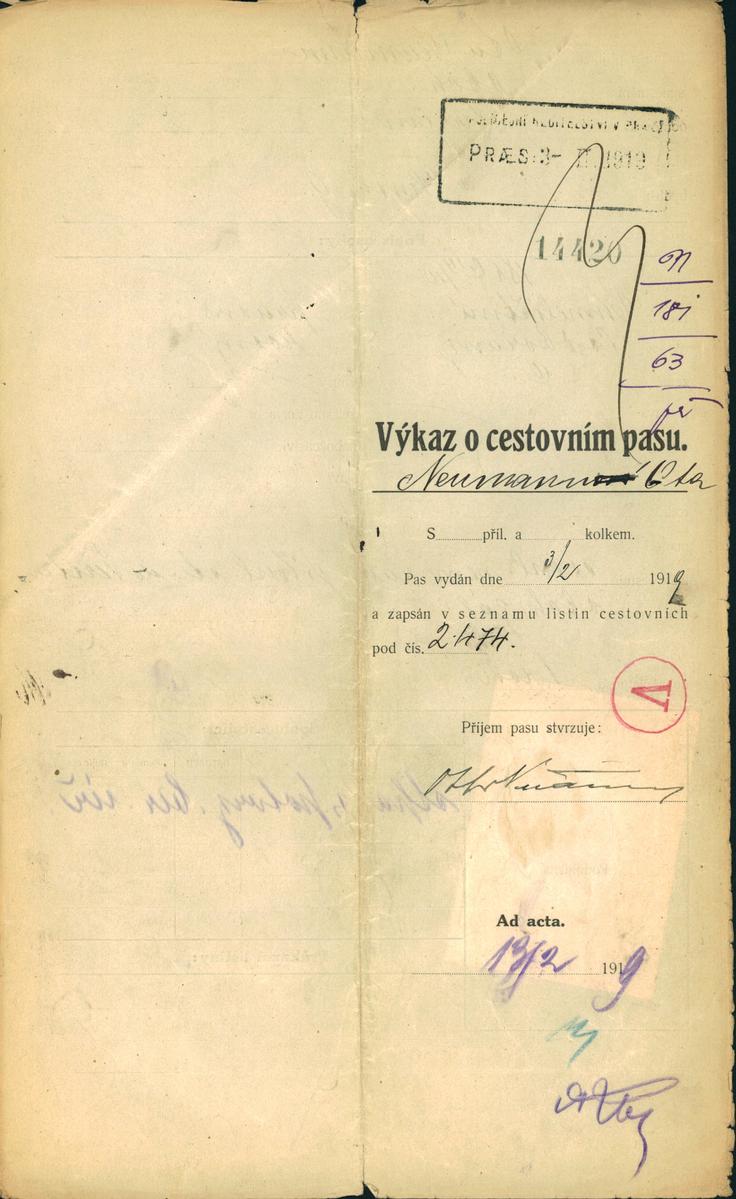 POLICEJNÍ ŘEDITELSTVÍ V PRAZE
PRÆS. 3- II. 1919
14420
N
181
63
Výkaz o cestovním pasu.
Neumann Ota
S příl. a kolkem.
Pas vydán dne 3/2 1919
a zapsán v seznamu listin cestovních
pod čís. 2474.
V
Příjem pasu stvrzuje:
Ad acta.
13/2 1919